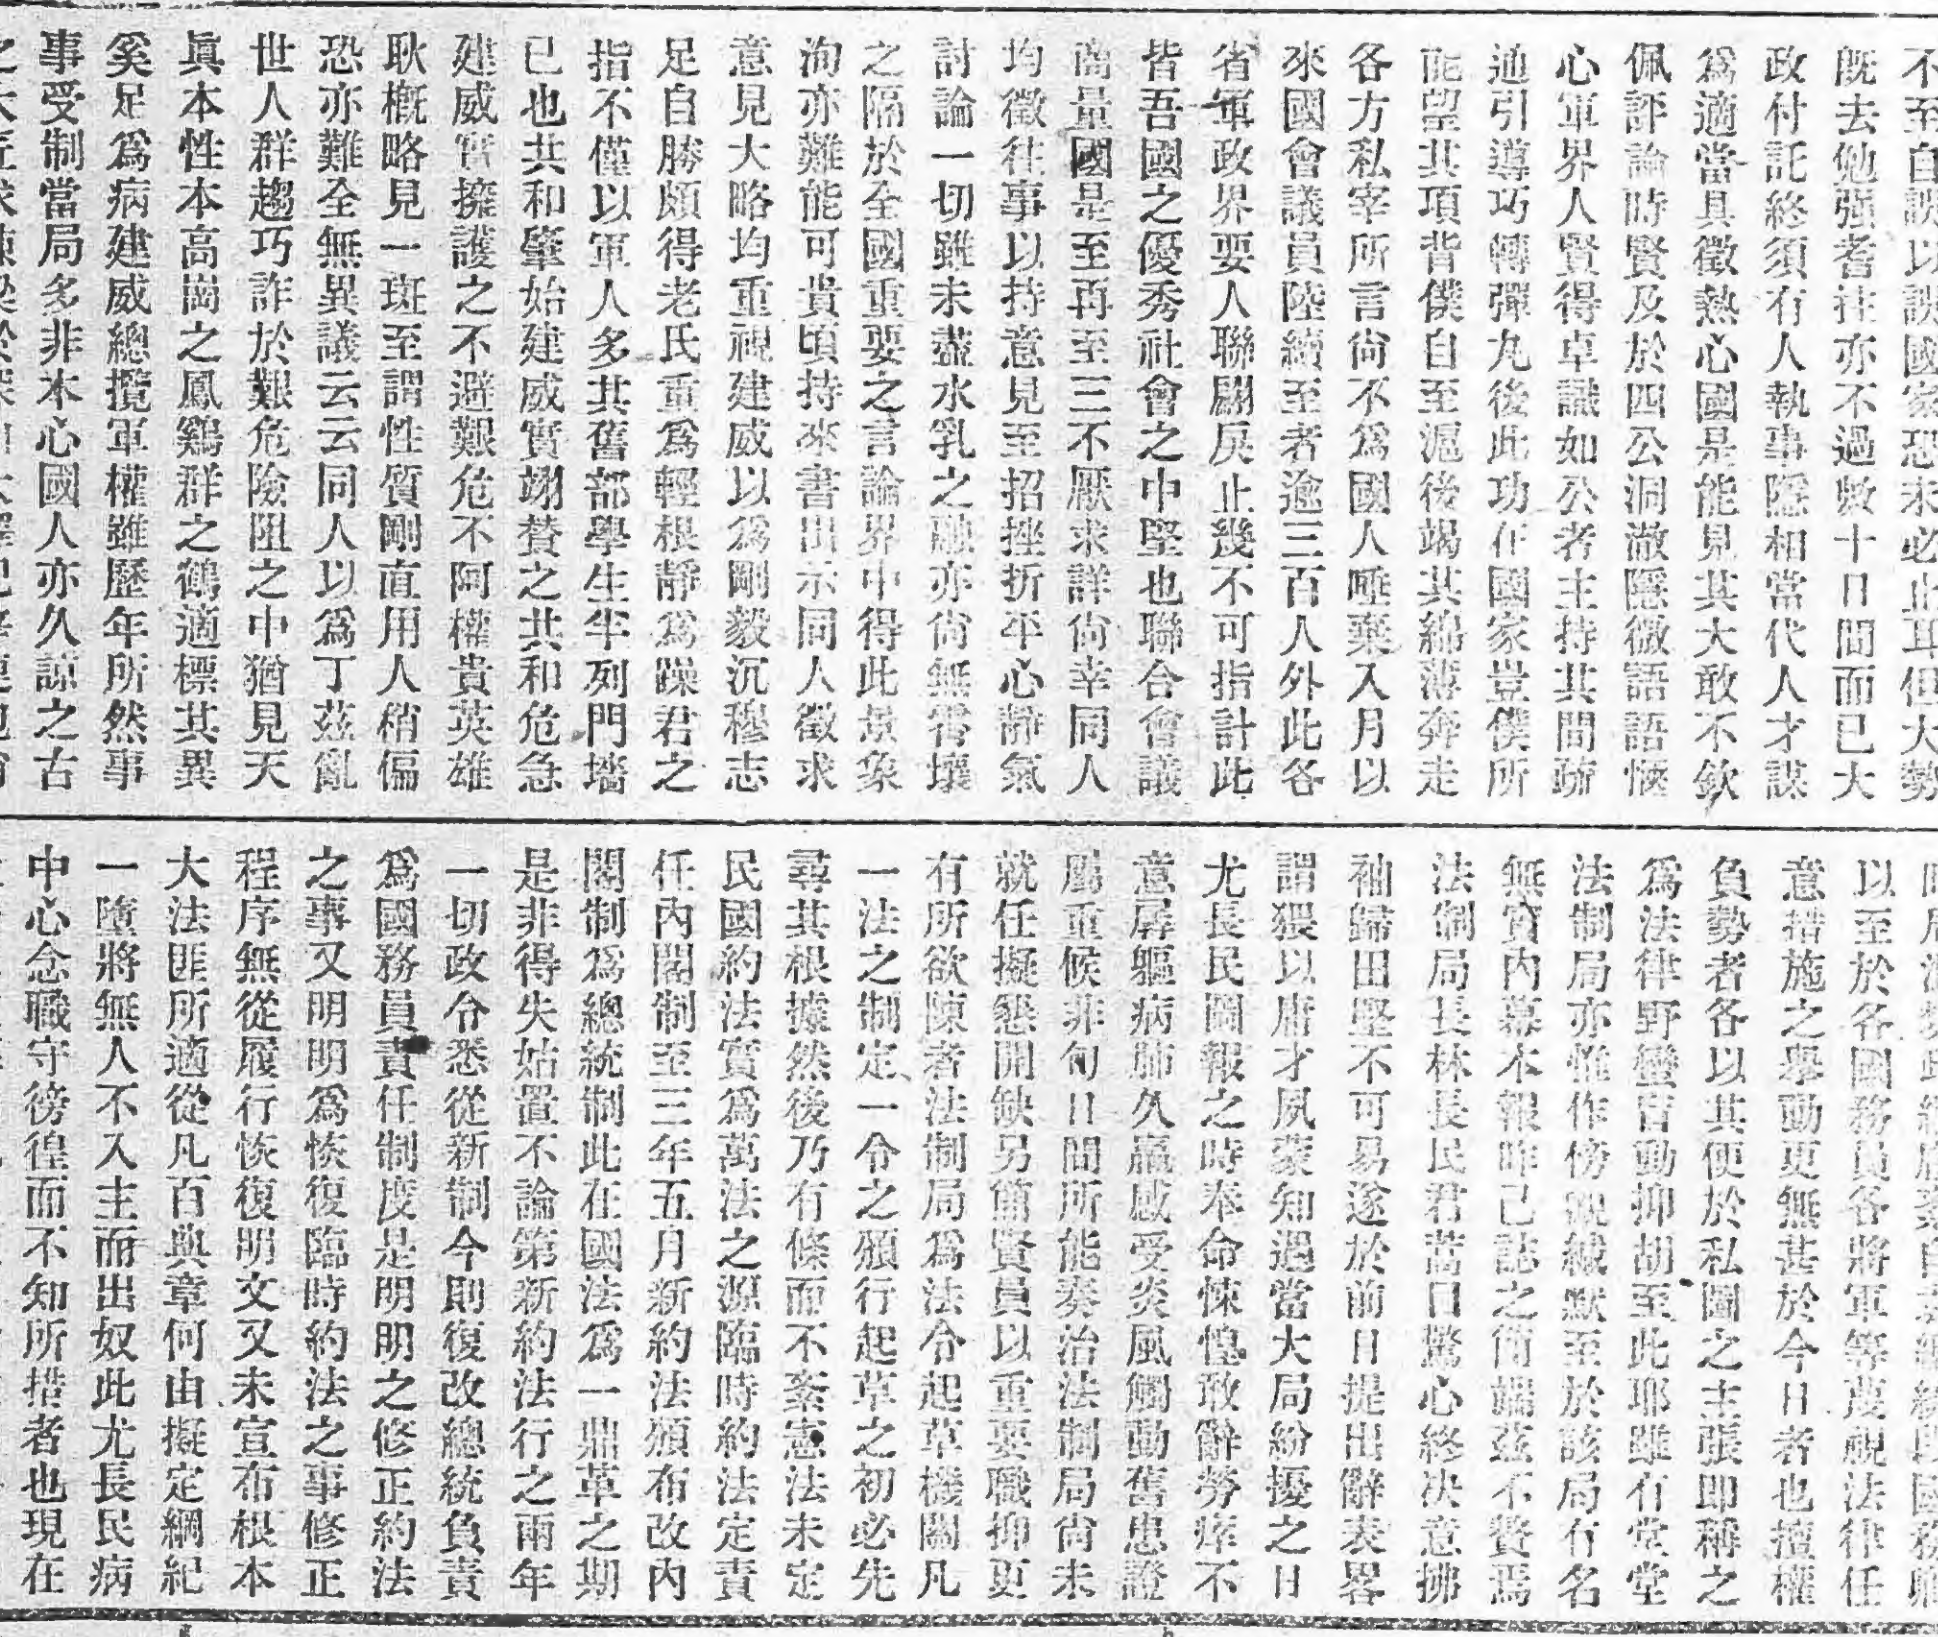 不至自誤以誤國家恐未必止耳但大勢
既去他强者拄亦不過數十日間而已大
政付託終須有人執事隱相當代人才謀
爲適當具徵熱心國是能見其大敢不欽
佩評論時賢及於四公洞澈隱微語語愜
心軍界人賢得卓識如公者主持其間疏
通引導巧轉彈丸後此功在國家豈僕所
能望其項背僕自至滬後竭其綿薄奔走
各方私宰所言尙不爲國人唾棄入月以
來國會議員陸續至者逾三百人外此各
省軍政界要人聯翩戾止幾不可指計此
皆吾國之優秀社會之中堅也聯合會議
商量國是至再至三不厭求詳尙幸同人
均徵往事以持意見至招挫折平心靜氣
討論一切雖未盡水乳之融亦尙無霄壤
之隔於全國重要之言論界中得此景象
洵亦難能可貴頃持來書出示同人徵求
意見大略均重視建威以爲剛毅沉穆志
足自勝頗得老氏重爲輕根靜爲躁君之
指不僅以軍人多其舊部學生半列門墻
已也共和肇始建威實翊贊之共和危急
建威實擁護之不避艱危不阿權貴英雄
耿槪略見一斑至謂性質剛直用人稍偏
恐亦難全無異議云云同人以爲丁茲亂
世人群趨巧詐於艱危險阻之中猶見天
眞本性本高崗之鳳鷄群之鶴適標其異
奚足爲病建威總攬軍權雖歷年所然事
事受制當局多非本心國人亦久諒之古
以至於各國務員各將軍等蔑視法律任
意措施之擧動更無甚於今日者也擅權
負勢者各以其便於私圖之主張即稱之
爲法律野蠻盲動抑胡至此耶雖有堂堂
法制局亦惟作傍觀緘默至於該局有名
無實內幕本報昨已誌之簡端茲不贅焉
法制局長林長民君蒿目驚心終決意拂
袖歸田堅不可易遂於前日提出辭表畧
謂猥以庸才夙蒙知遇當大局紛擾之日
尤長民圖報之時奉命悚惶敢辭勞瘁不
意孱軀病肺久羸感受炎風觸動舊患證
屬重候非旬日間所能奏治法制局尙未
就任擬懇開缺另簡賢員以重要職抑更
有所欲陳者法制局爲法令起草機關凡
一法之制定一令之頒行起草之初必先
尋其根據然後乃有條而不紊憲法未定
民國約法實爲萬法之源臨時約法定責
任內閣制至三年五月新約法頒布改內
閣制爲總統制此在國法爲一鼎革之期
是非得失姑置不論第新約法行之兩年
一切政令悉從新制今則復改總統負責
爲國務員責任制度是明明之修正約法
之事又明明爲恢復臨時約法之事修正
程序無從履行恢復明文又未宣布根本
大法匪所適從凡百典章何由擬定綱紀
一墮將無人不入主而出奴此尤長民病
中心念職守徬徨而不知所措者也現在